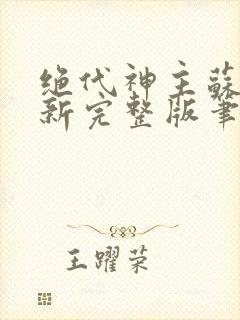 绝代神主蘇
新完整版筆
王躍荣